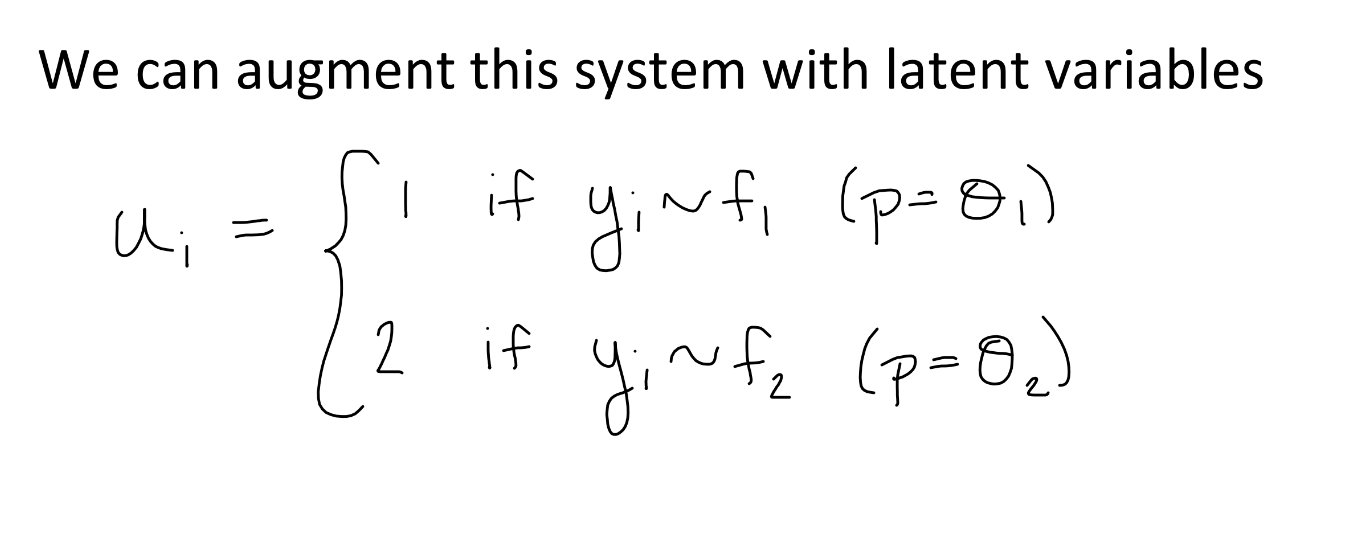 We can augment this system with latent variables
uᵢ = { 1 if yᵢ ~ f₁ (p = θ₁)
2 if yᵢ ~ f₂ (p = θ₂)